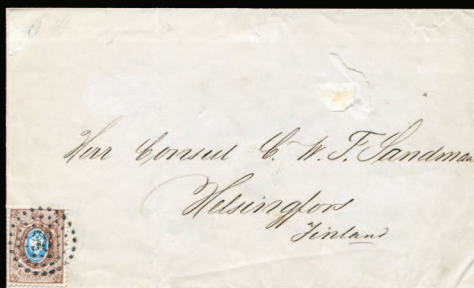 Herr Consul C. W. F. Sandman
Helsingfors
Finland